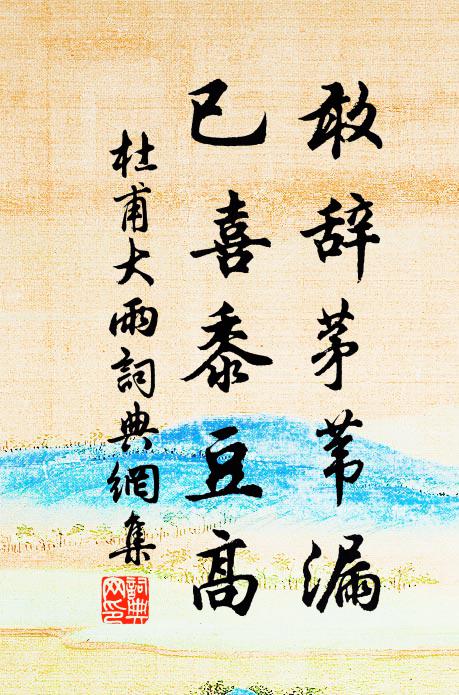 敢辞茅苇漏
已喜黍豆高
杜甫大雨詞典網集
詞典